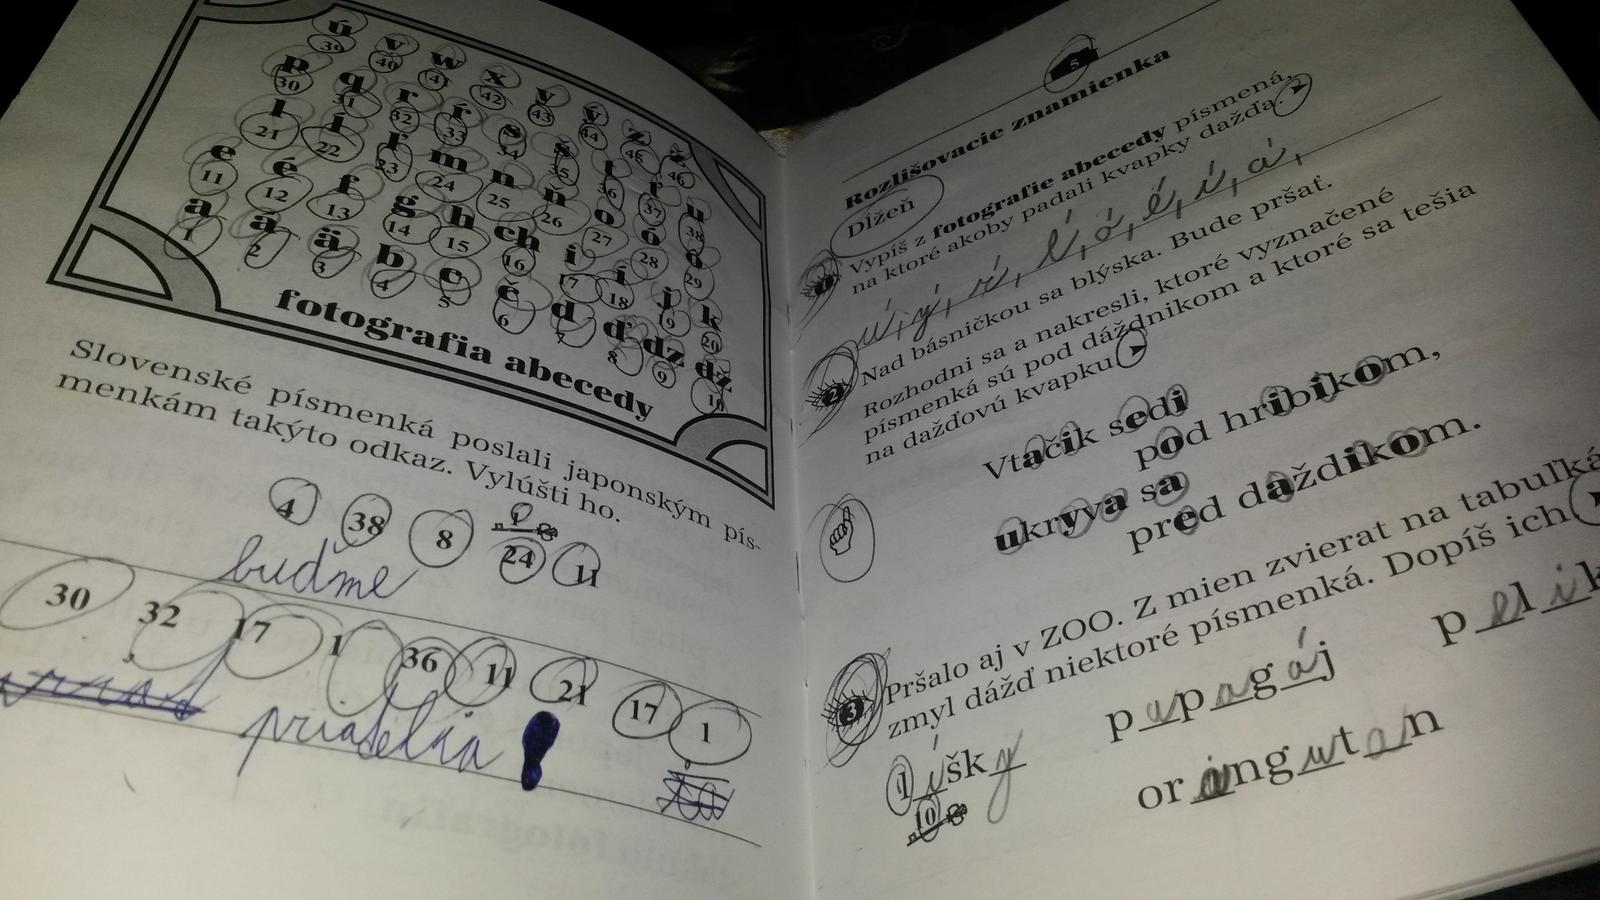 ú v w x y ý z ž
39 40 41 42 43 44 45 46
p q r ŕ s š t ť u
30 31 32 33 34 35 36 37 38
l ĺ ľ m n ň o ó ô
21 22 23 24 25 26 27 28 29
e é f g h ch i í j k
11 12 13 14 15 16 17 18 19 20
a á ä b c č d ď dz dž
1 2 3 4 5 6 7 8 9 10
fotografia abecedy
Slovenské písmenká poslali japonským pís-
menkám takýto odkaz. Vylúšti ho.
4 38 8 24 11
buďme
30 32 17 1 36 11 21 17 1
priatelia !
5
Rozlišovacie znamienka
Dĺžeň
1 Vypíš z fotografie abecedy písmená,
na ktoré akoby padali kvapky dažďa.
ú, ý, ŕ, ĺ, ó, é, í, á,
2 Nad básničkou sa blýska. Bude pršať.
Rozhodni sa a nakresli, ktoré vyznačené
písmenká sú pod dáždnikom a ktoré sa tešia
na dažďovú kvapku.
Vtačik sedi
pod hribikom,
ukryva sa
pred daždikom.
3 Pršalo aj v ZOO. Z mien zvierat na tabuľká
zmyl dážď niektoré písmenká. Dopíš ich
líšky papagáj pelik
10 orangutan